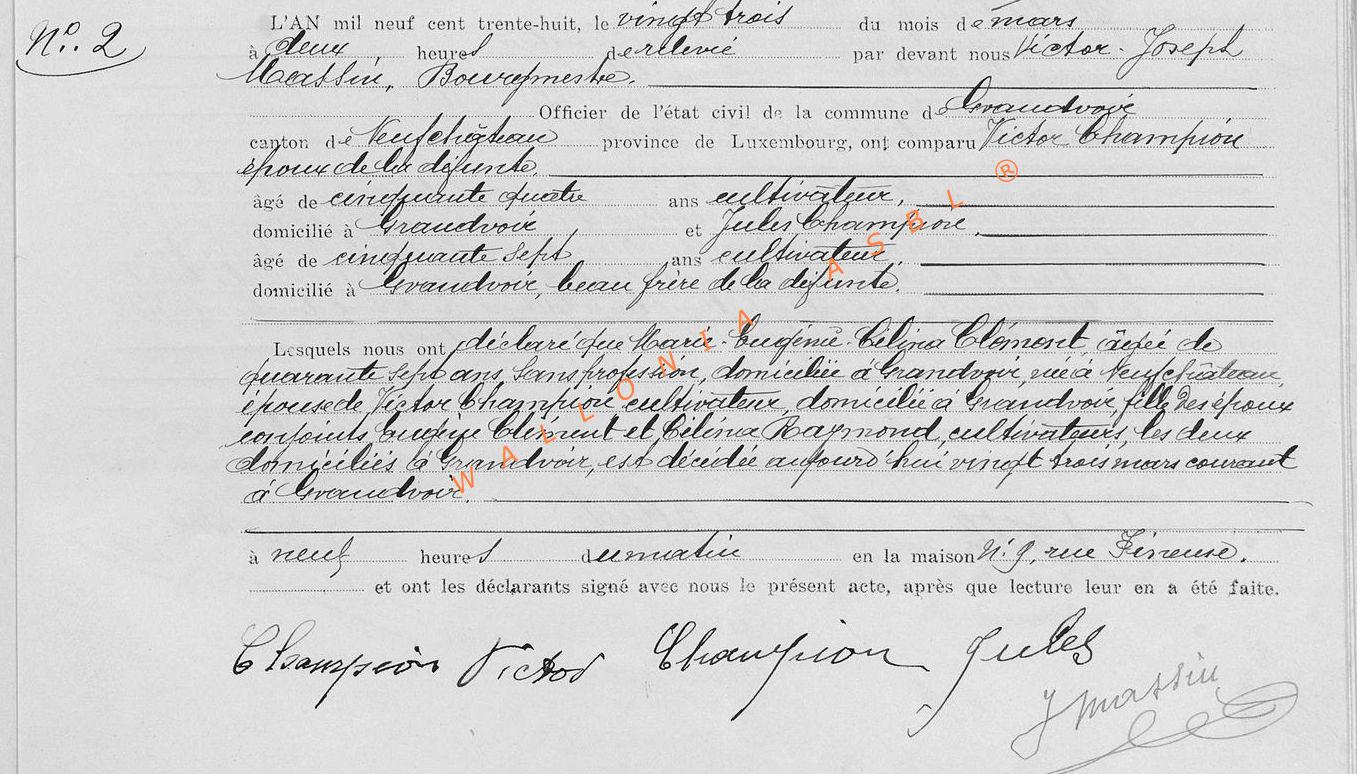 N°. 2
L'AN mil neuf cent trente-huit, le vingt trois du mois de mars
à deux heures de relevée par devant nous Victor-Joseph
Massin, Bourgmestre.
Officier de l'état civil de la commune de Grandvoir
canton de Neufchâteau province de Luxembourg, ont comparu Victor Champion
époux de la défunte.
âgé de cinquante quatre ans cultivateur,
domicilié à Grandvoir et Jules Champion,
âgé de cinquante sept ans cultivateur,
domicilié à Grandvoir, beau frère de la défunte.
Lesquels nous ont déclaré que Marie-Eugénie-Célina Clément, âgée de
quarante sept ans, sans profession, domiciliée à Grandvoir, née à Neufchâteau,
épouse de Victor Champion cultivateur, domicilié à Grandvoir, fille des époux
conjoints Eugène Clément et Célina Raymond, cultivateurs, les deux
domiciliés à Grandvoir, est décédée aujourd'hui vingt trois mars courant
à Grandvoir.
à neuf heures du matin en la maison N°. 9, rue
et ont les déclarants signé avec nous le présent acte, après que lecture leur en a été faite.
Champion Victor Champion Jules
J Massin
WALLONIA ASBL ®